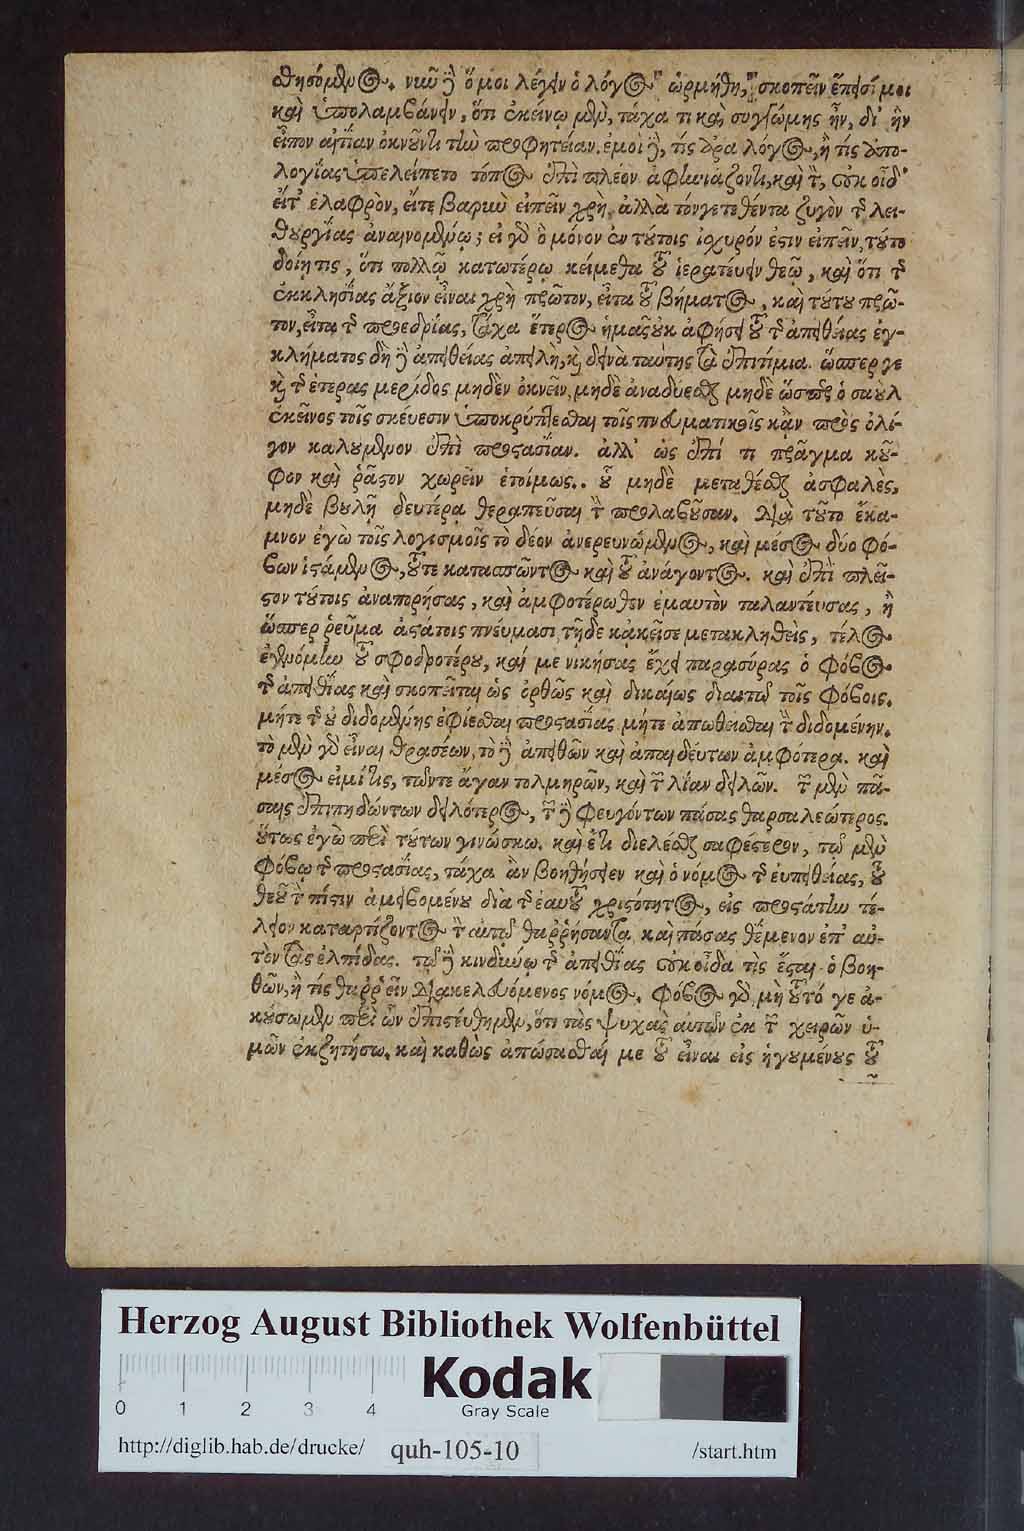 θησόμενος. νῦν δὲ ὅ μοι λέγειν ὁ λόγος ὡρμήθη, σκοπεῖν ἔπεισί μοι
καὶ ὑπολαμβάνειν, ὅτι ἐκείνῳ μὲν, τάχα τι καὶ συγγνώμης ἦν, δι' ἣν
εἶπον αἰτίαν ὀκνοῦντι τὴν προφητείαν. ἐμοὶ δὲ, τίς ἄρα λόγος, ἢ τίς ἀπο-
λογίας ὑπελείπετο τόπος ἐπὶ πλέον ἀφηνιάζοντι, καὶ τὸν, οὐκ οἶδ'
εἴτ' ἐλαφρὸν, εἴτε βαρὺν εἰπεῖν χρὴ, ἀλλὰ τόνγε τεθέντα ζυγὸν τῆς λει-
τουργίας ἀναινομένῳ; εἰ γὰρ ὃ μόνον ἐν τούτοις ἰσχυρόν ἐστιν εἰπεῖν, τοῦτο
δοίη τις, ὅτι πολλῷ κατωτέρω κείμεθα τοῦ ἱερατεύειν θεῷ, καὶ ὅτι τῆς
ἐκκλησίας ἄξιον εἶναι χρὴ πρῶτον, εἶτα τοῦ βήματος, καὶ τούτου πρῶ-
τον, εἶτα τῆς προεδρίας, τάχα ἕτερος ἡμᾶς οὐκ ἀφήσει τοῦ τῆς ἀπειθείας ἐγ-
κλήματος δὴ δὲ ἀπειθείας ἀπειλὴ, καὶ δεινὰ ταύτης τὰ ἐπιτίμια. ὥσπερ γε
καὶ τῆς ἑτέρας μερίδος μηδὲν ὀκνεῖν, μηδὲ ἀναδύεσθαι μηδὲ ὥσπερ ὁ σαοὺλ
ἐκεῖνος τοῖς σκεύεσιν ὑποκρύπτεσθαι τοῖς πνευματικοῖς κἂν πρὸς ὀλί-
γον καλούμενον ἐπὶ προστασίαν. ἀλλ' ὡς ἐπί τι πρᾶγμα κοῦ-
φον καὶ ῥᾷστον χωρεῖν ἑτοίμως.. οὗ μηδὲ μεταθέσθαι ἀσφαλὲς,
μηδὲ βουλῇ δευτέρᾳ θεραπεῦσαι τὴν προλαβοῦσαν. διὰ τοῦτο ἔκα-
μνον ἐγὼ τοῖς λογισμοῖς τὸ δέον ἀνερευνώμενος, καὶ μέσος δύο φό-
βων ἱστάμενος, τοῦτε κατασπῶντος καὶ τοῦ ἀνάγοντος. καὶ ἐπὶ πλεῖ-
στον τούτοις ἀναπορήσας, καὶ ἀμφοτέρωθεν ἐμαυτὸν ταλαντεύσας, ἢ
ὥσπερ ῥεῦμα ἀστάτοις πνεύμασι, τῇδε κἀκεῖσε μετακληθεὶς, τέλος
ἐγενόμην τοῦ σφοδροτέρου, καί με νικήσας ἔχει παρασύρας ὁ φόβος
τῆς ἀπειθείας καὶ σκοπεῖται ὡς ὀρθῶς καὶ δικαίως διαιτῶ τοῖς φόβοις.
μήτε τῆς οὐ διδομένης ἐφίεσθαι προστασίας, μήτε ἀπωθεῖσθαι τὴν διδομένην.
τὸ μὲν γὰρ εἶναι θρασέων, τὸ δὲ ἀπειθῶν καὶ ἀπαιδεύτων ἀμφότερα. καὶ
μέσος εἰμί τις, τῶντε ἄγαν τολμηρῶν, καὶ τῶν λίαν δειλῶν. τῶν μὲν πά-
σαις ἐπιπηδώντων δειλότερος, τῶν δὲ φευγόντων πάσας θαρσαλεώτερος.
οὕτως ἐγὼ περὶ τούτων γινώσκω. καὶ ἔτι διελέσθαι σαφέστερον, τῷ μὲν
φόβῳ τῆς προστασίας, τάχα ἂν βοηθήσειεν καὶ ὁ νόμος τῆς εὐπειθείας, τοῦ
θεοῦ τὴν πίστιν ἀμειβομένου διὰ τῆς ἑαυτοῦ χρηστότητος, εἰς προστάτην τέ-
λειον καταρτίζοντος τὸν αὐτῷ θαρρήσαντα, καὶ πάσας θέμενον ἐπ' αὐ-
τὸν τὰς ἐλπίδας. τῷ δὲ κινδύνῳ τῆς ἀπειθείας οὐκ οἶδα τίς ἔσται ὁ βοη-
θῶν, ἢ τίς θαρρεῖν διακελευόμενος νόμος. φόβος γὰρ, μὴ τοῦτό γε ἀ-
κούσωμεν περὶ ὧν ἐπιστεύθημεν, ὅτι τὰς ψυχὰς αὐτῶν ἐκ τῶν χειρῶν ὑ-
μῶν ἐκζητήσω. καὶ καθὼς ἀπώσασθαί με τοῦ εἶναι εἰς ἡγουμένους τοῦ
Herzog August Bibliothek Wolfenbüttel
Kodak
Gray Scale
0 1 2 3 4
http://diglib.hab.de/drucke/ quh-105-10 /start.htm